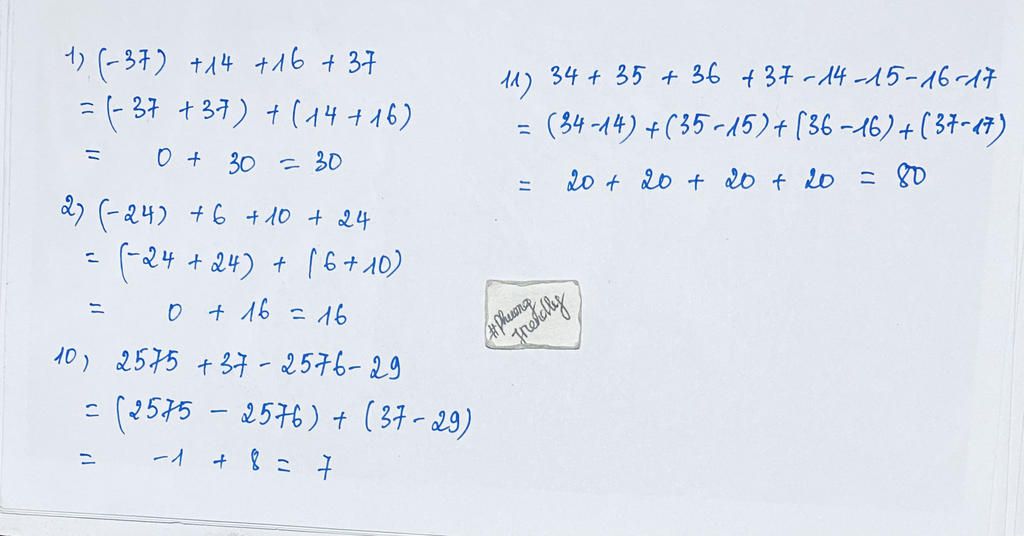 1) (-37) + 14 + 16 + 37
= (-37 + 37) + (14 + 16)
= 0 + 30 = 30
2) (-24) + 6 + 10 + 24
= (-24 + 24) + (6 + 10)
= 0 + 16 = 16
10) 2575 + 37 - 2576 - 29
= (2575 - 2576) + (37 - 29)
= -1 + 8 = 7
11) 34 + 35 + 36 + 37 - 14 - 15 - 16 - 17
= (34 - 14) + (35 - 15) + (36 - 16) + (37 - 17)
= 20 + 20 + 20 + 20 = 80
#Phuong
Friendly